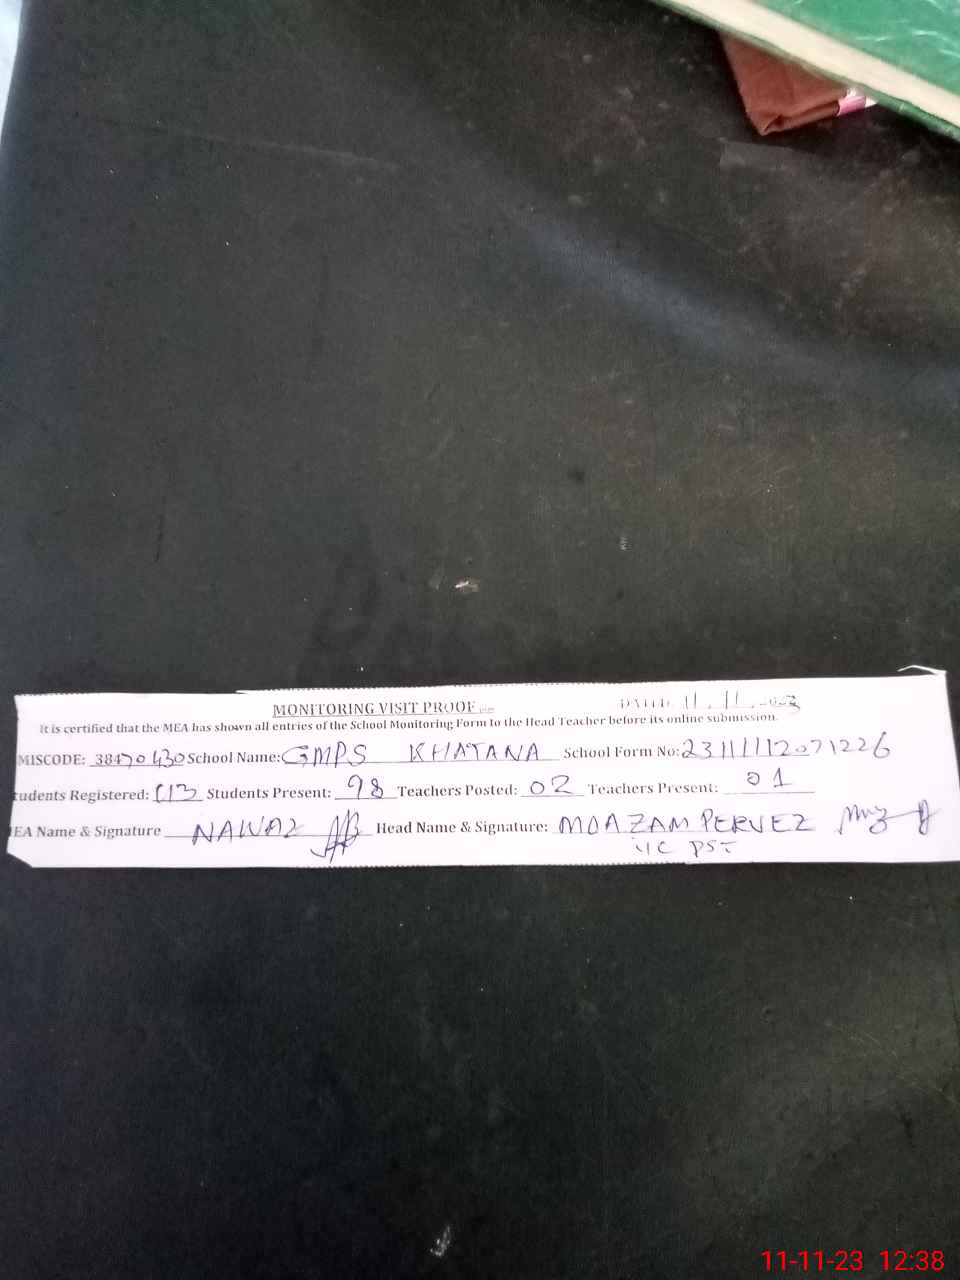 MONITORING VISIT PROOF
DATED: 11.11.2023
It is certified that the MEA has shown all entries of the School Monitoring Form to the Head Teacher before its online submission.
MISCODE: 38470430 School Name: GMPS KHATANA School Form No: 23111112071226
tudents Registered: 113 Students Present: 98 Teachers Posted: 02 Teachers Present: 01
EA Name & Signature NAWAZ Head Name & Signature: MOAZAM PERVEZ
I/C PST
11-11-23 12:38